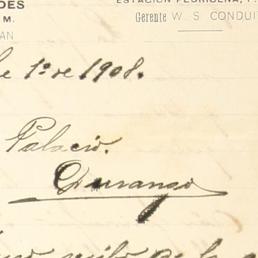 DES ESTACION PEDRICEÑA,
M. Gerente W. S. CONDUI
AN
e 1º de 1908.
Palacio.
Durango